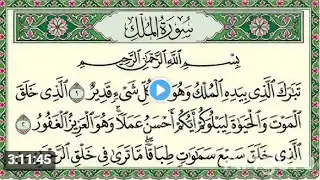 سُورَةُ الْمُلْكِ
بِسْمِ اللَّهِ الرَّحْمَٰنِ الرَّحِيمِ
تَبَارَكَ الَّذِي بِيَدِهِ الْمُلْكُ وَهُوَ كُلِّ شَيْءٍ قَدِيرٌ ١ الَّذِي خَلَقَ
الْمَوْتَ وَالْحَيَاةَ لِيَبْلُوَكُمْ أَيُّكُمْ أَحْسَنُ عَمَلًا وَهُوَ الْعَزِيزُ الْغَفُورُ ٢
الَّذِي خَلَقَ سَبْعَ سَمَاوَاتٍ طِبَاقًا مَا تَرَىٰ فِي خَلْقِ
3:11:45